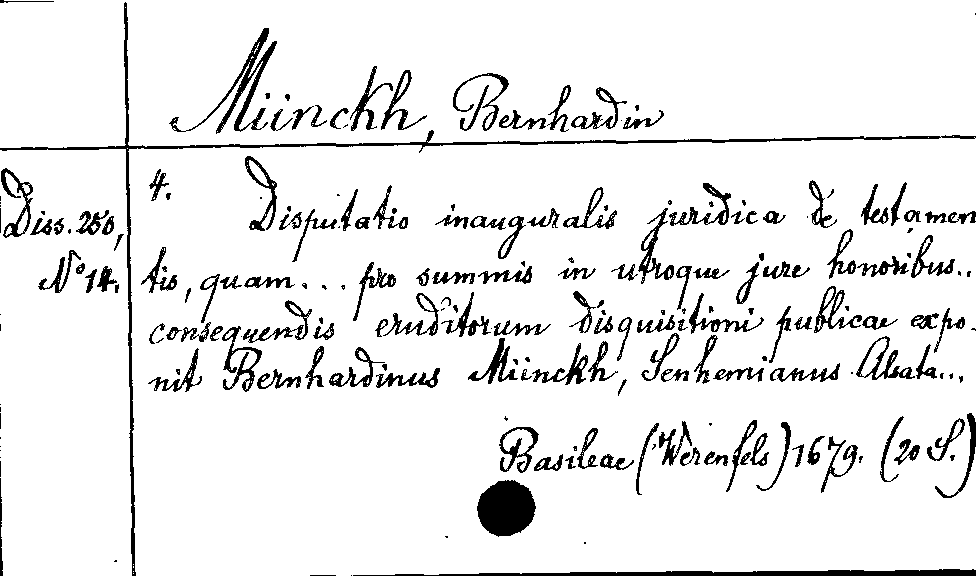 Münckh, Bernhardin
4.
Diss. 250,
No 14.
Disputatio inauguralis juridica de testamen
tis, quam... pro summis in utroque jure honoribus..
consequendis eruditorum disquisitioni publicae expo-
nit Bernhardinus Münckh, Senhemianus Alsata...
Basileae (Werenfels) 1679. (20 S.)